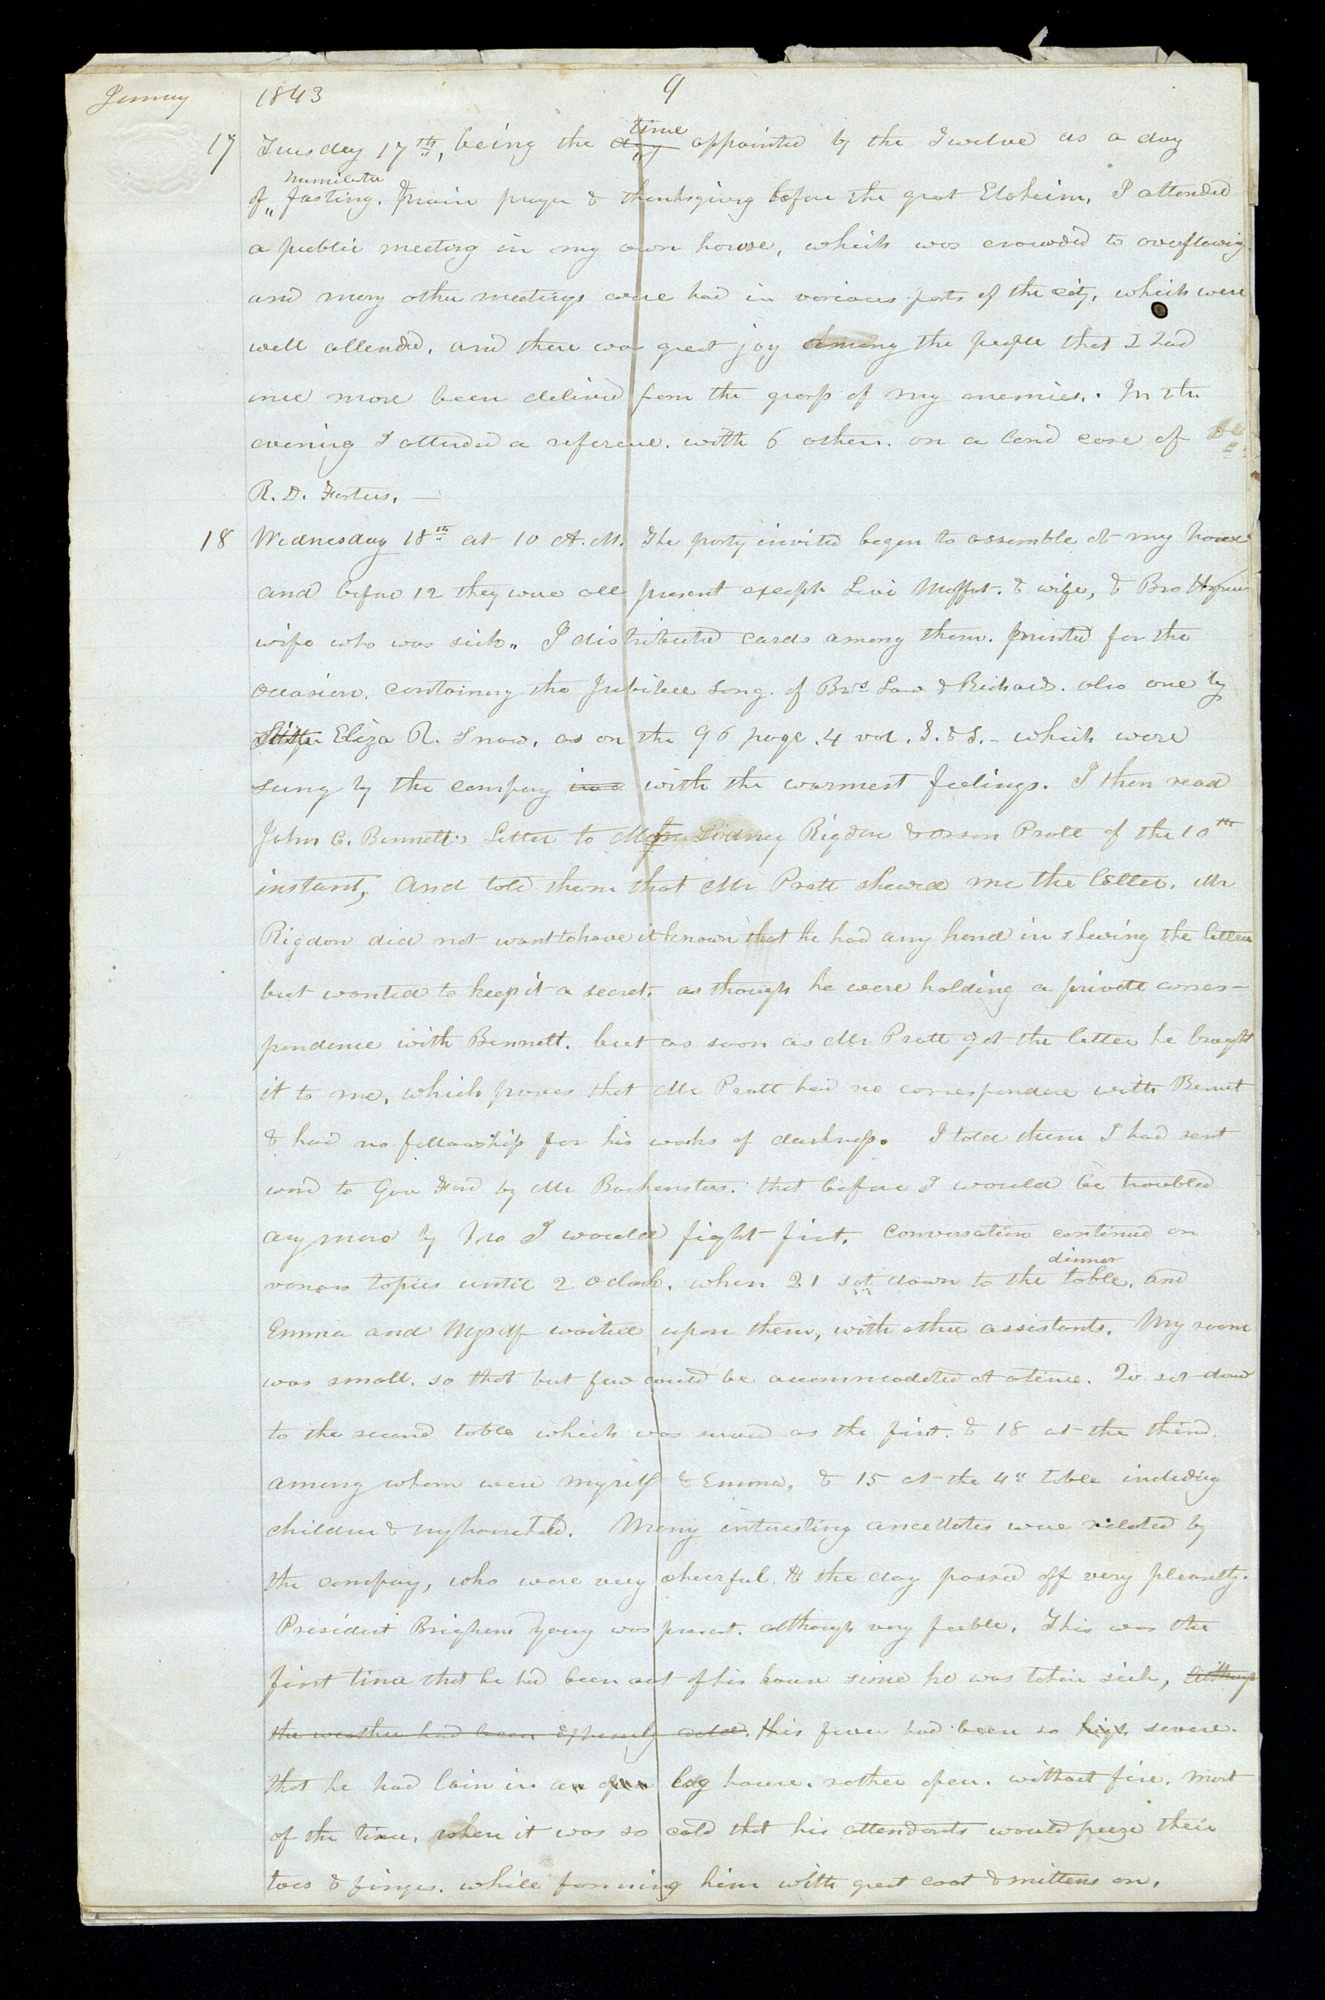 January 1843 9
17 Tuesday 17th, being the day time appointed by the Twelve as a day
of humiliation fasting. praise prayer & thanksgiving before the great Eloheim, I attended
a public meeting in my own house, which was crowded to overflowing
and many other meetings were had in various parts of the city, which were
well attended, and there was great joy among the people that I had
once more been delivered from the grasp of my enemies. In the
evening I attended a referene. with 6 others. on a land case of Dr
R. D. Fosters.—
18 Wednesday 18th at 10 A.M. The party invited began to assemble at my house
and before 12 they were all present except Levi Moffit. & wife, & Bro Hyrums
wife who was sick. I distributed cards among them. printed for the
occasion. containing the Jubilee Song. of Brs Law & Richards. also one by
Sister Eliza R. Snow, as on the 96 page .4 vol. T. & S. - which were
sung by the company with the warmest feelings. I then read
John C. Bennett's Letter to Mr Sidney Rigdon & Orson Pratt of the 10th
instant, and told them that Mr Pratt shewed me the letter. Mr
Rigdon did not want to have it known that he had any hand in shewing the letter
but wanted to keep it a secret. as though he were holding a private corres-
pondence with Bennett. but as soon as Mr Pratt got the letter he brought
it to me, which proves that Mr Pratt had no correspondence with Bennet
& had no fellowship for his works of darkness. I told them I had sent
word to Gov Ford by Mr Backenstos. that before I would be troubled
any more by Mo I would fight first. conversation continued on
various topics until 2 oclock. when 21 sat down to the dinner table. and
Emma and Myself waited upon them, with other assistants. My room
was small. so that but few could be accommodated at a time. 20 sat down
to the second table which was served as the first. & 18 at the third.
among whom were myself & Emma, & 15 at the 4th table including
children & my household. Many interesting anecdotes were related by
the company, who were very cheerful. & the day passed off very pleasantly.
President Brigham Young was present. although very feeble. This was the
first time that he had been out of his house since he was taken sick, although
the weather had been extremely cold. his fever had been so high severe.
that he had lain in an open log house. rather open. without fire. most
of the time, when it was so cold that his attendants would freeze their
toes & fingers. while fanning him with great coat & mittens on.